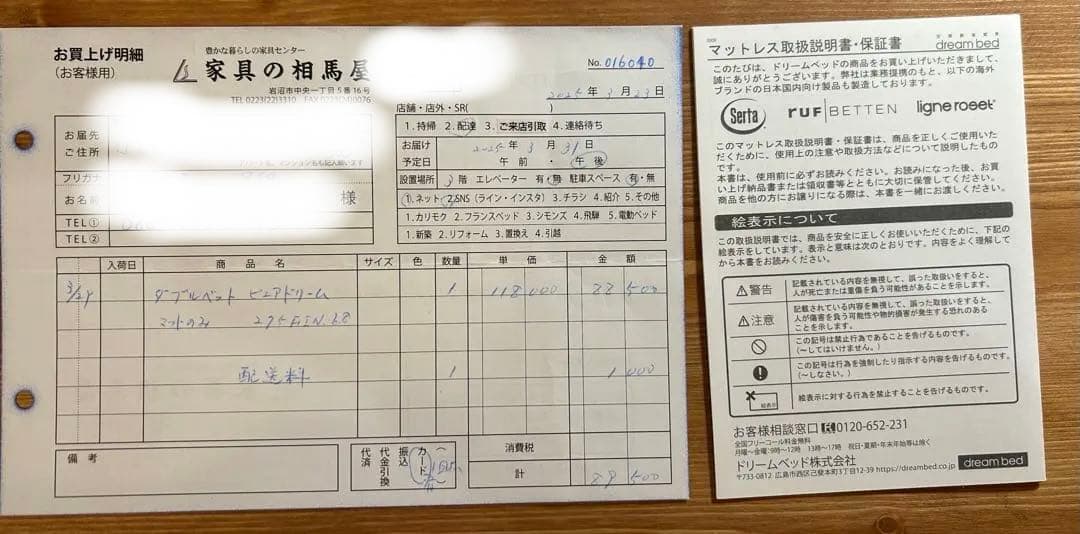 お買上げ明細
(お客様用)
豊かな暮らしの家具センター
家具の相馬屋
岩沼市中央一丁目5番16号
TEL 0223(22)3310 FAX 0223(24)0076
No. 016040
2025年 3月 23日
店舗・店外・SR( )
お届先
ご住所
フリガナ
お名前
様
TEL①
TEL②
1.持帰 2.配達 3.ご来店引取 4.連絡待ち
お届け
予定日
2025年 3月 31日
午前・午後
設置場所 3階 エレベーター 有・無 駐車スペース 有・無
1.ネット 2.SNS(ライン・インスタ) 3.チラシ 4.紹介 5.その他
1.カリモク 2.フランスベッド 3.シモンズ 4.飛騨 5.電動ベッド
1.新築 2.リフォーム 3.置換え 4.引越
入荷日 商品名 サイズ 色 数量 単価 金額
ダブルベット ピュアドリーム 1 118 000 88 500
マットのみ
配送料 1 1 000
備考
代済
代金引換
振込
カード
消費税
計 89 500
マットレス取扱説明書・保証書
dream bed
このたびは、ドリームベッドの商品をお買い上げいただきまして、
誠にありがとうございます。弊社は業務提携のもと、以下の海外
ブランドの日本国内向け製品も製造しております。
Serta
RUF BETTEN
ligne roset
このマットレス取扱説明書・保証書は、商品を正しくご使用いた
だくために、使用上の注意や取扱方法などについて説明したもの
です。
本書は、使用前に必ずお読みください。お読みになった後、お買
い上げ納品書または領収書等とともに大切に保管してください。
商品を他の方にお譲りになる際は、本書を一緒にお渡しください。
絵表示について
この取扱説明書では、商品を安全に正しくお使いいただくために、下記の
絵表示をしています。表示と意味は次のとおりです。内容をよく理解して
から本書をお読みください。
警告
記載されている内容を無視して、誤った取扱いをすると、
人が死亡または重傷を負う可能性があることを示します。
注意
記載されている内容を無視して、誤った取扱いをすると、
人が傷害を負う可能性や物的損害が発生する恐れのある
ことを示します。
この記号は禁止行為であることを告げるものです。
(〜してはいけません。)
この記号は行為を強制したり指示する内容を告げるものです。
(〜しなさい。)
絵表示
絵表示に対する行為を禁止することを告げるものです。
お客様相談窓口 0120-652-231
全国フリーコール料金無料
月曜〜金曜:9時〜12時 13時〜17時 祝日・夏期・年末年始等は除く
ドリームベッド株式会社
dream bed
〒733-0812 広島市西区己斐本町3丁目12-39 https://dreambed.co.jp